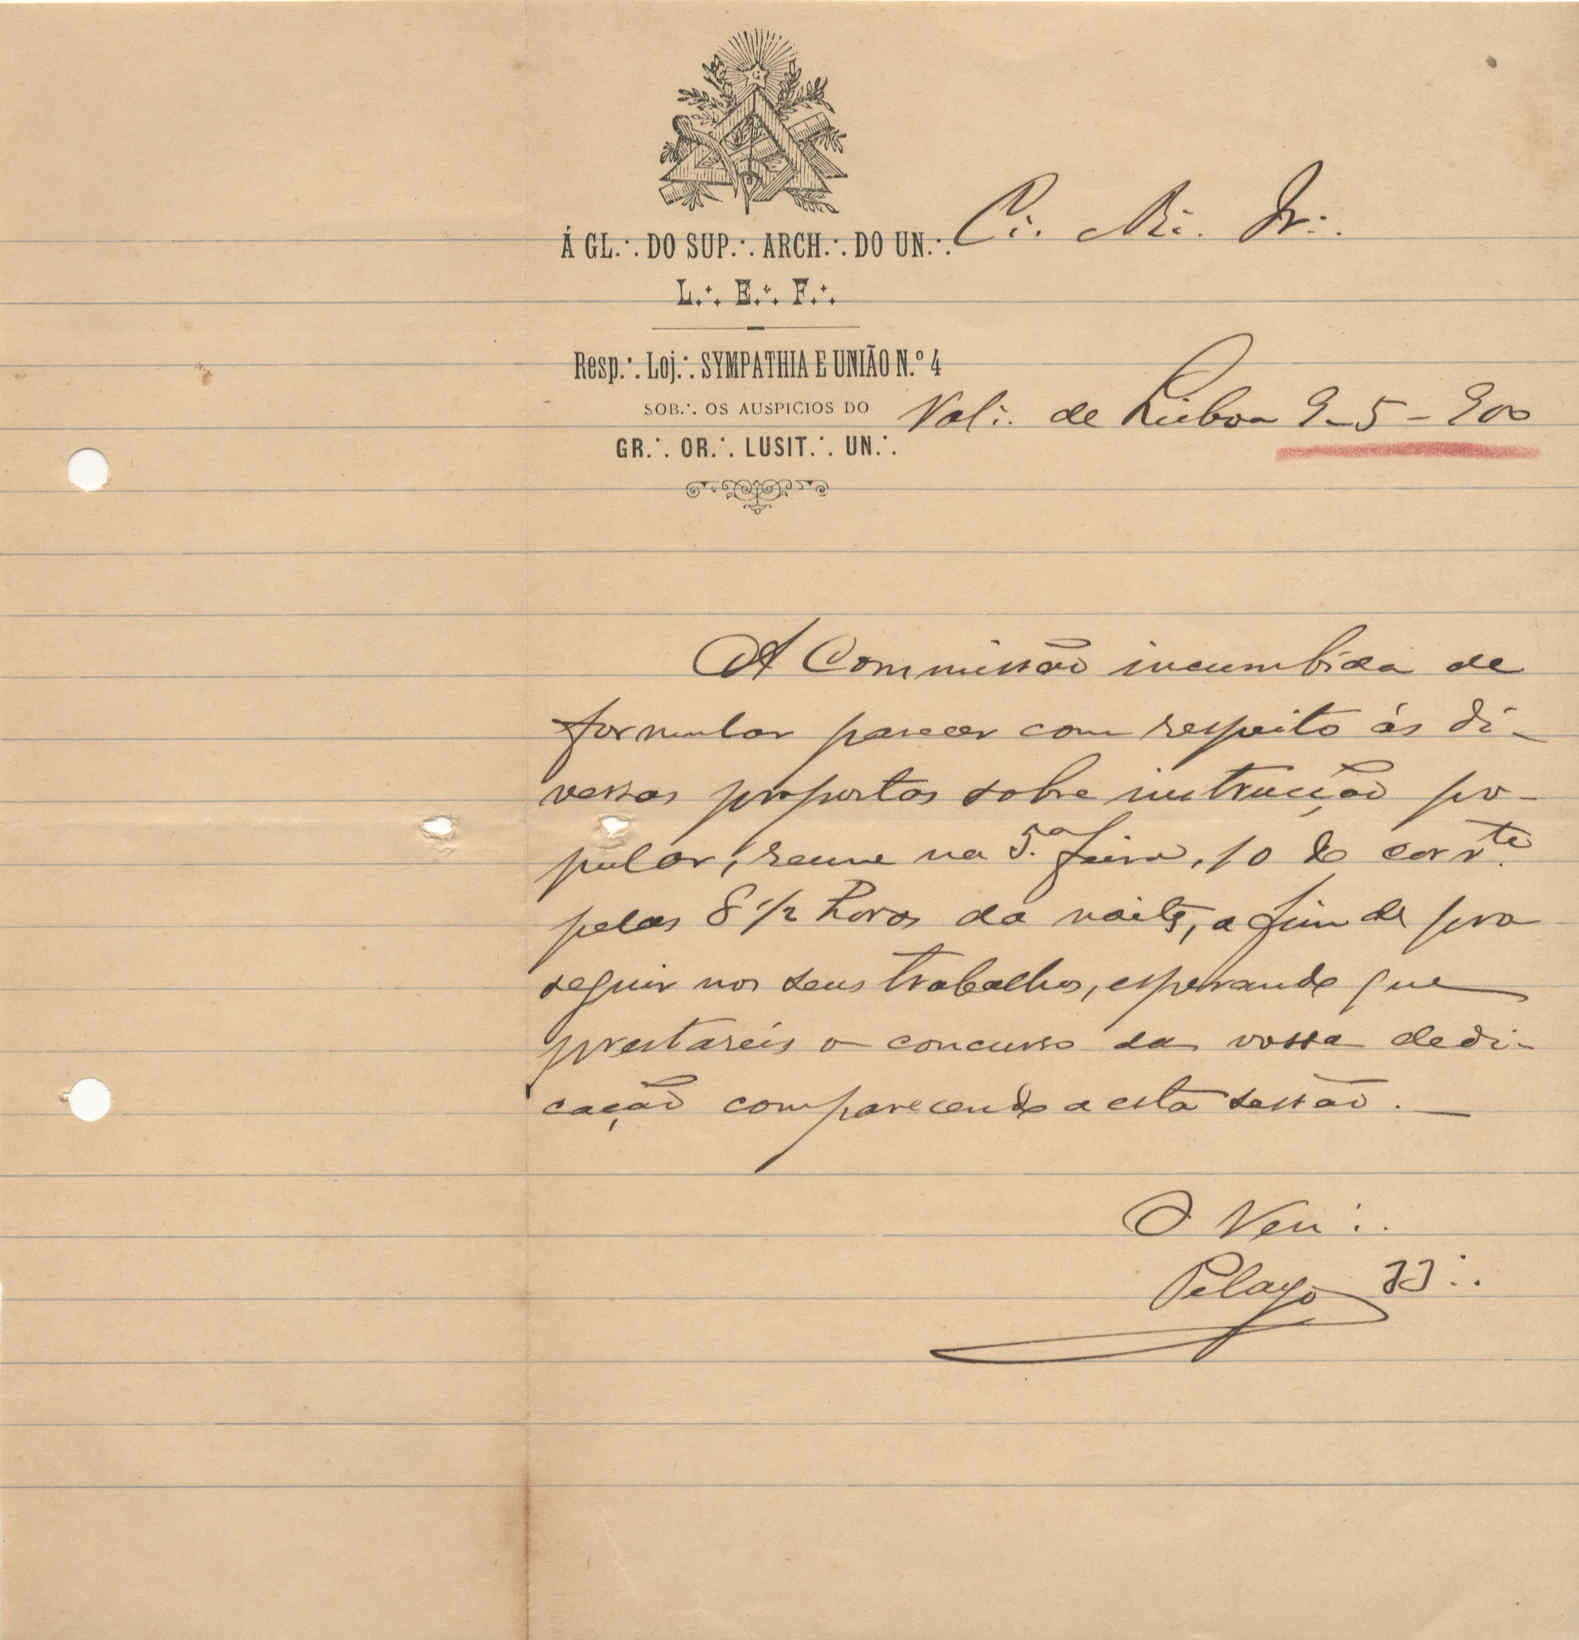 Á GL.∴ DO SUP.∴ ARCH.∴ DO UN.∴
C∴ Ir∴
L.∴ E.∴ F.∴
Resp.∴ Loj.∴ SYMPATHIA E UNIÃO N.º 4
SOB.∴ OS AUSPICIOS DO
Val∴ de Lisboa 9-5-900
GR.∴ OR.∴ LUSIT.∴ UN.∴
A Commissão incumbida de
formular parecer com respeito ás di-
versas propostas sobre instrucção po-
pular, reune na 5.ª feira, 10 do corr.te
pelas 8 1/2 horas da noite, a fim de pro
seguir nos seus trabalhos, esperando que
prestareis o concurso da vossa dedi-
cação comparecendo a esta sessão.
O Ven∴
Pelayo